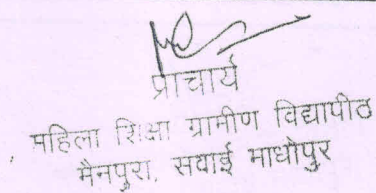 प्राचार्य
महिला शिक्षा ग्रामीण विद्यापीठ
मैनपुरा, सवाई माधोपुर